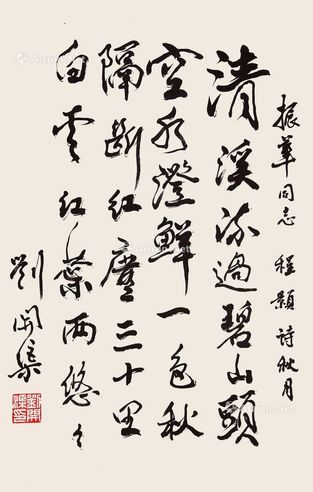 振華同志 程顥詩秋月
清溪流過碧山頭
空水澄鮮一色秋
隔斷紅塵三十里
白雲紅葉兩悠々
劉開渠
劉開渠印